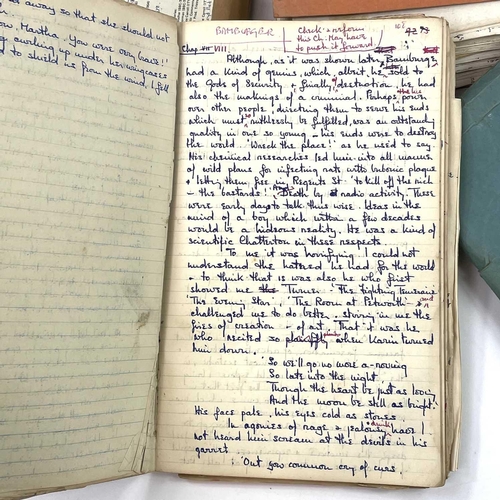 of away so that she should not
now, Martha. You were very brave!'
working up under her wingcases
to shield us from the wind. I fell
BAMBURGER
Check a reform
this Ch. May have
to push it forward.
108
Chap VIII
Although, as it was shown later, Bamburger
had a kind of genius, which, albeit he sold to
the Gods of Security & finally destruction, he had
also the makings of a criminal. Perhaps power
over other people, directing them to serve his ends
which must ruthlessly be fulfilled, was an outstanding
quality in one so young – his ends were to destroy
the world. 'Wreck the place!' as he used to say.
His chemical researches led him into all manner
of wild plans for infecting rats with bubonic plague
& letting them free in Regents St. 'to kill off the rich
– the bastards'. Death by radio activity. These
were early days to talk thus wise. Ideas in the
mind of a boy which within a few decades
would be a hideous reality. He was a kind of
scientific Chatterton in these respects.
To me it was horrifying. I could not
understand the hatred he had for the world
– to think that is was also he who first
showed me Turner. 'The Fighting Temeraire'
'The Evening Star', 'The Room at Petworth' and
challenged me to do better, stirring in me the
fires of creation – of art. That it was he
who recited so when Karin turned
him down.
So we'll go no more a-roving
So late into the night
Though the heart be just as loving
And the moon be still as bright.
His face pale, his eyes cold as stones.
In agonies of rage & jealousy have I
not heard him scream at the devils in his
garret
: 'Out you common cry of curs